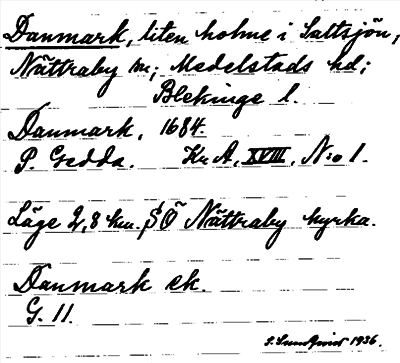 Danmark, liten holme i Saltsjön,
Nättraby sn; Medelstads hd;
Blekinge l.
Danmark, 1684.
P. Gedda. Kr A, XVIII, N:o 1.
Läge 2,8 km. SÖ Nättraby kyrka.
Danmark ek.
G. 11.
S. Sundqvist 1936.